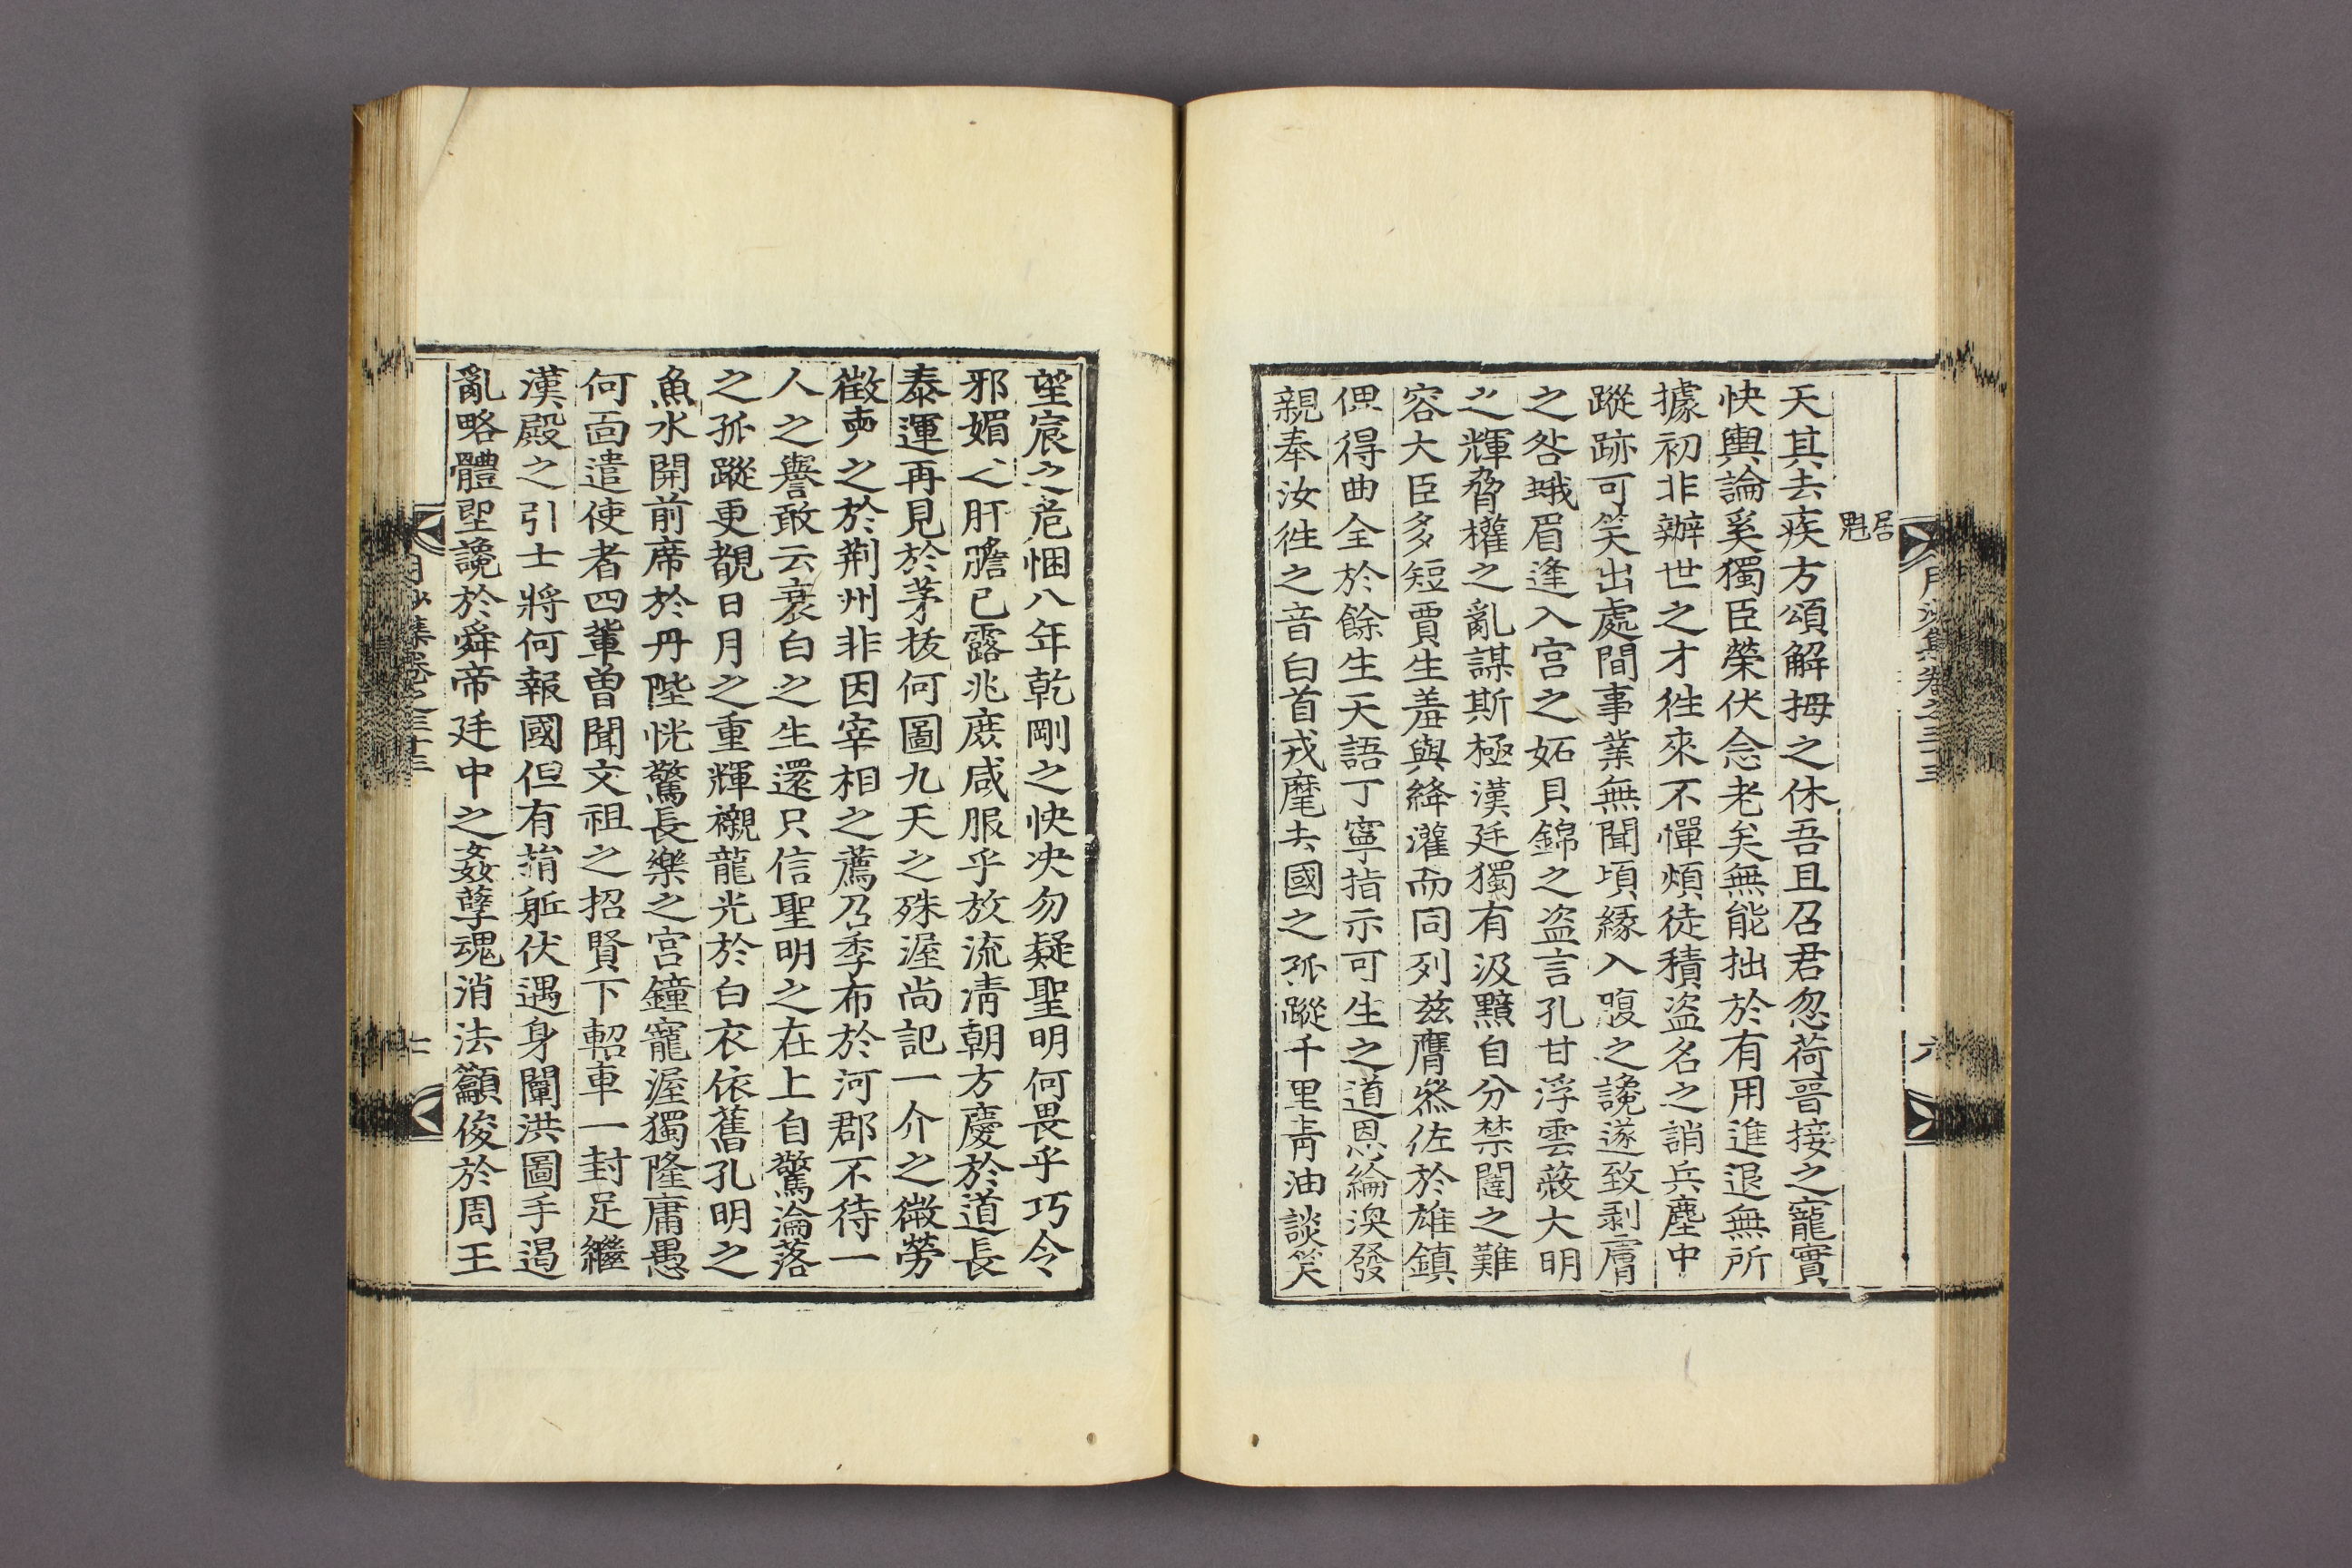 月沙集卷之三十三
六
居魁
天其去疾方頌解拇之休吾且召君忽荷晉接之寵實
快輿論奚獨臣榮伏念老矣無能拙於有用進退無所
據初非辦世之才徃來不憚煩徒積盜名之誚兵塵中
蹤跡可笑出處間事業無聞頃緣入腹之讒遂致剥膚
之咎蛾眉逢入宫之妬貝錦之盗言孔甘浮雲蔽大明
之輝脅權之亂謀斯極漢廷獨有汲黯自分禁闥之難
容大臣多短賈生羞與絳灌而同列兹膺叅佐於雄鎮
俾得曲全於餘生天語丁寧指示可生之道恩綸渙發
親奉汝徃之音白首戎麾去國之孤蹤千里青油談笑
望宸之危悃八年乾剛之快决勿疑聖明何畏乎巧令
邪媚之肝膽已露兆庶咸服乎放流淸朝方慶於道長
泰運再見於茅拔何圖九天之殊渥尚記一介之微勞
徵虏之於荆州非因宰相之薦召季布於河郡不待一
人之譽敢云衰白之生還只信聖明之在上自驚淪落
之孤蹤更覩日月之重輝襯龍光於白衣依舊孔明之
魚水開前席於丹陛恍驚長樂之宫鐘寵渥獨隆庸愚
何面遣使者四輩曽聞文祖之招賢下軺車一封足繼
漢殿之引士將何報國但有捐軀伏遇身闡洪圖手遏
亂略體堲讒於舜帝廷中之姦孽魂消法籲俊於周王
月沙集卷之三十三
七